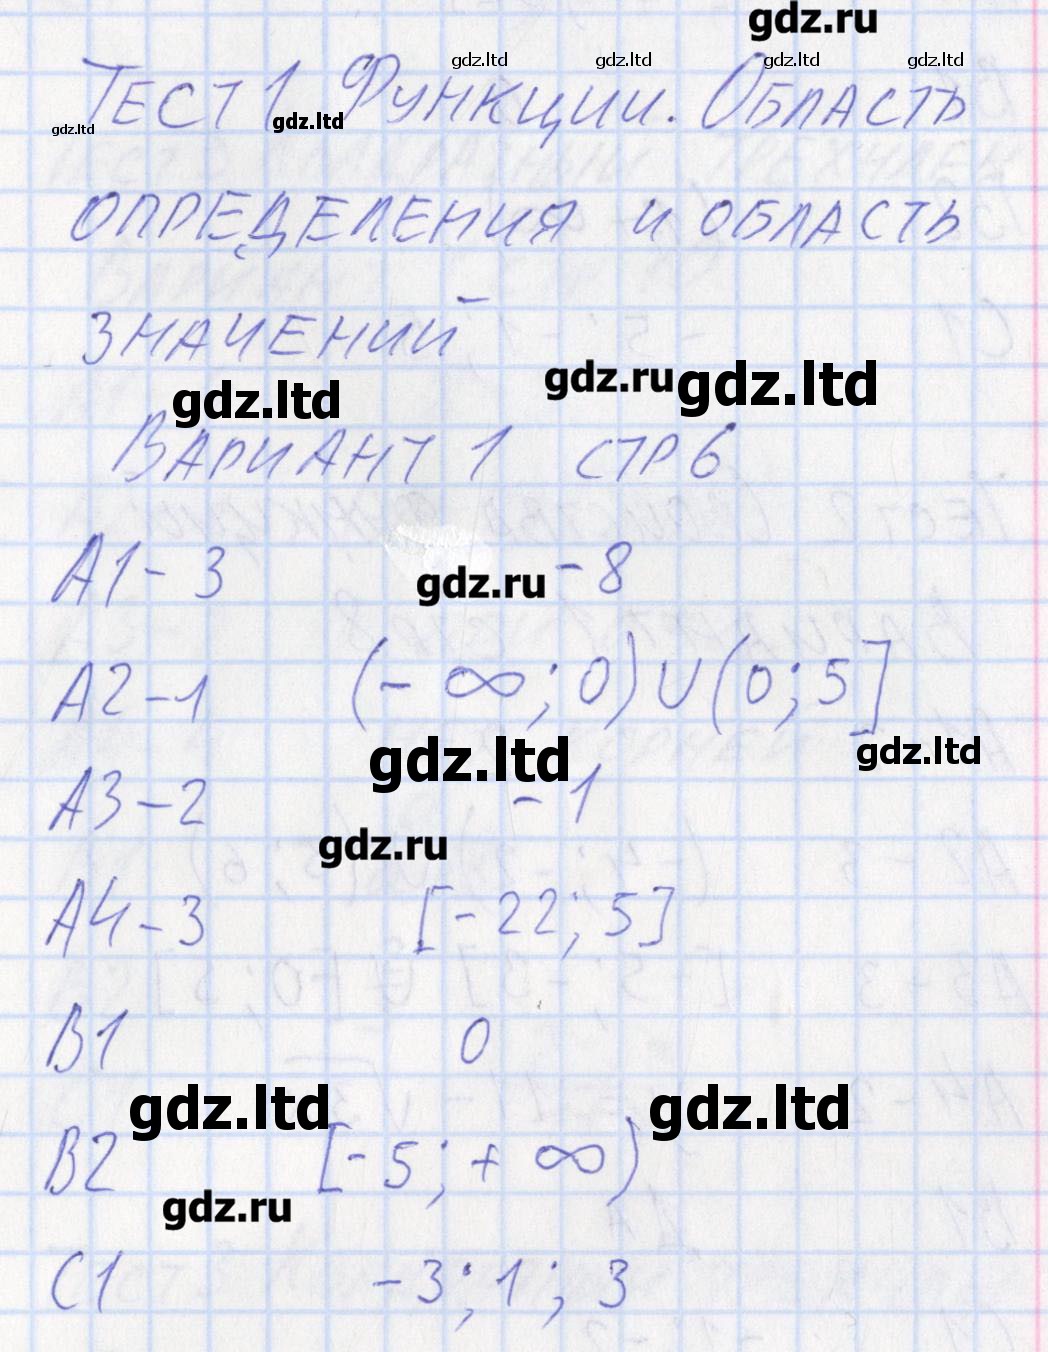 gdz.ru
gdz.ltd gdz.ltd gdz.ltd gdz.ltd
Тест 1 Функции. Область
gdz.ltd gdz.ltd
определения и область
значений
gdz.ru gdz.ltd
gdz.ltd
Вариант 1 стр 6
А1-3 -8
gdz.ru
А2-1 (-∞; 0)∪(0; 5]
gdz.ltd gdz.ltd
А3-2 -1
gdz.ru
А4-3 [-22; 5]
В1 0
gdz.ltd gdz.ltd
В2 [-5; +∞)
gdz.ru
С1 -3; 1; 3